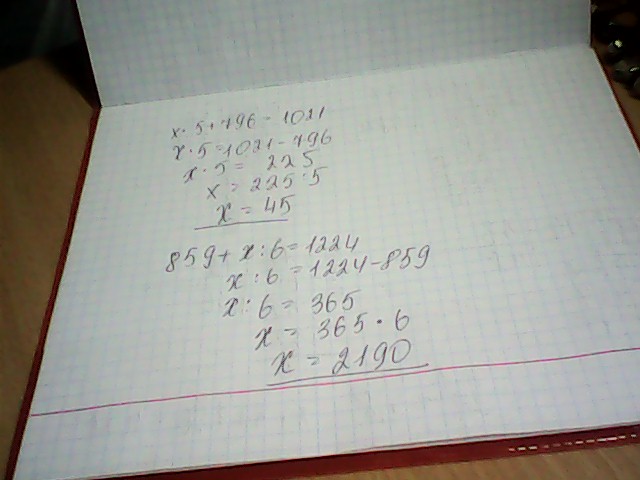 x · 5 + 796 = 1021
x · 5 = 1021 - 796
x · 5 = 225
x = 225 : 5
x = 45
859 + x : 6 = 1224
x : 6 = 1224 - 859
x : 6 = 365
x = 365 · 6
x = 2190